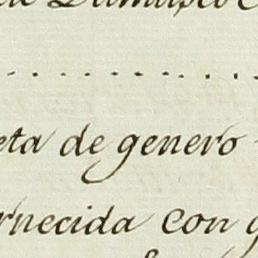 Damasco
eta de genero
rnecida con g